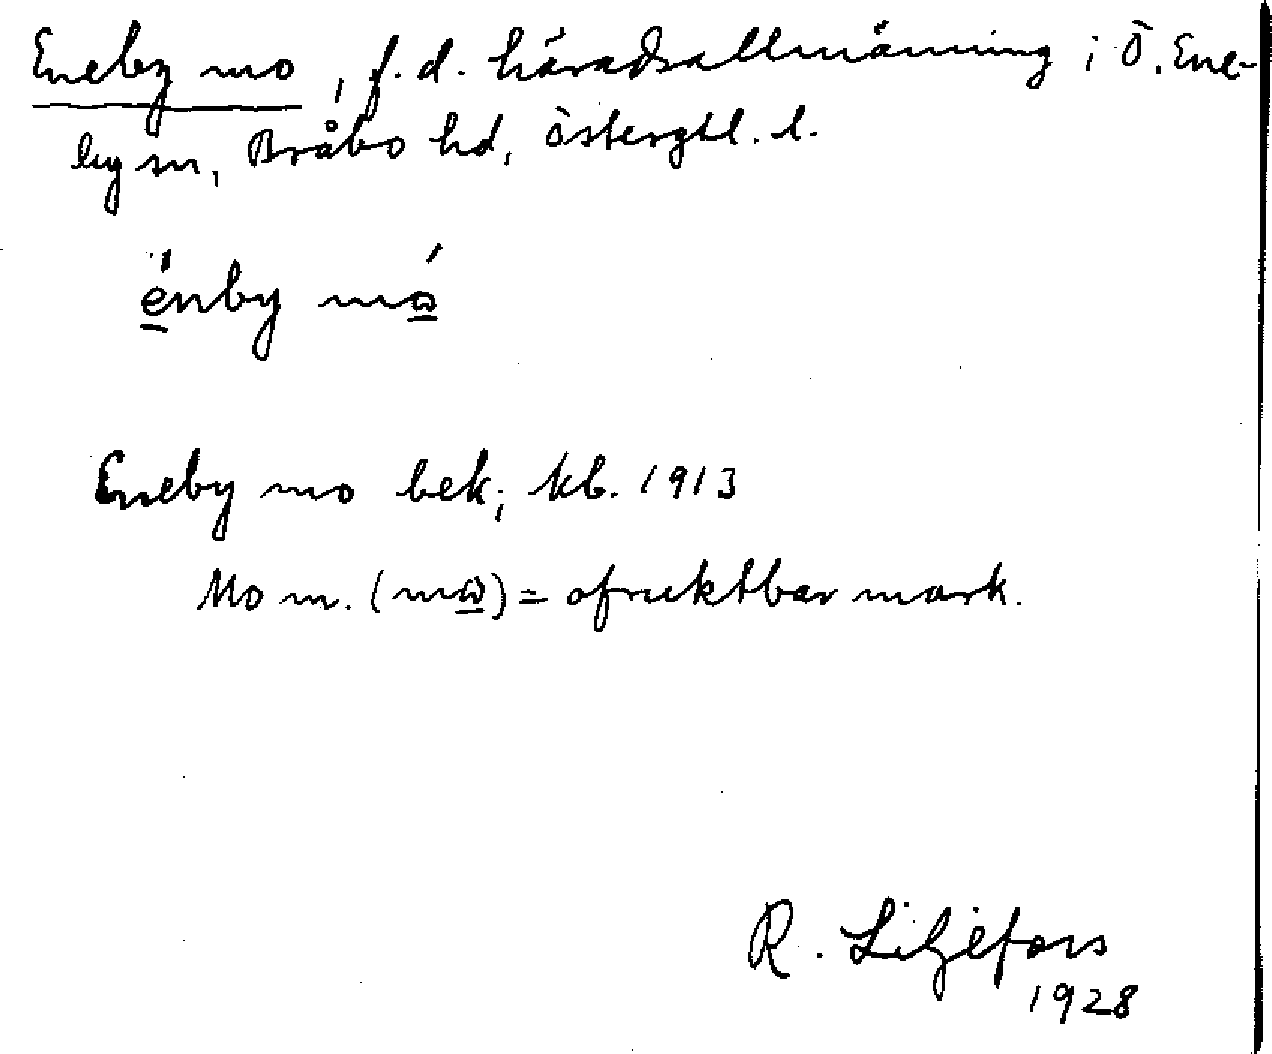 Eneby mo, f.d. häradsallmänning i Ö. Ene-
by sn, Bråbo hd, Östergtl. l.
énby mó
Eneby mo bek; kb. 1913
Mo m. (mω) = ofruktbar mark.
R. Liljefors
1928